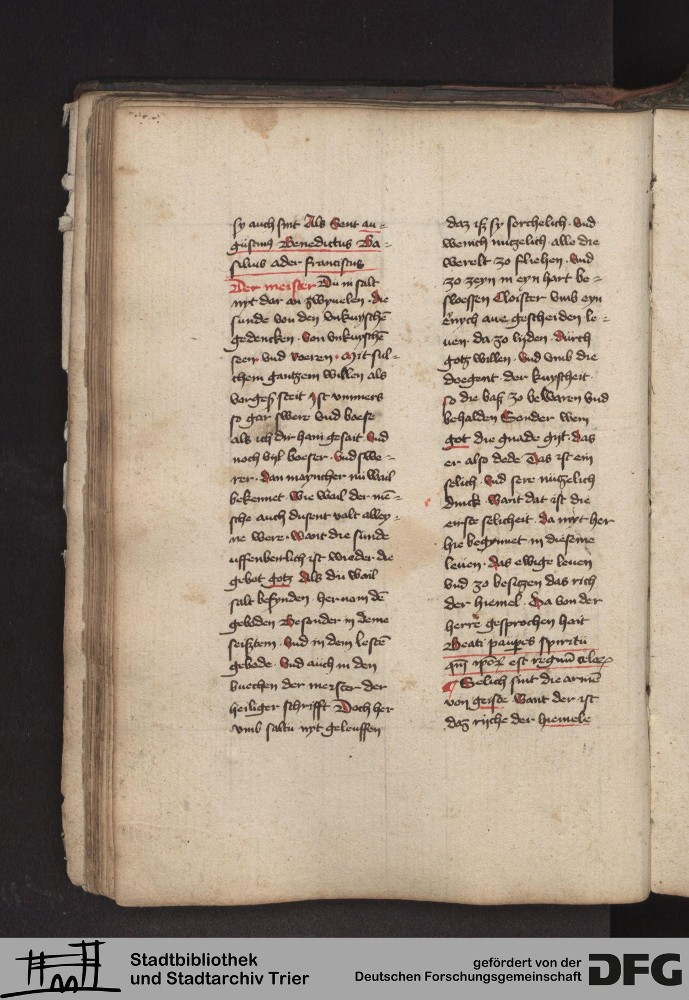 sy auch sint Als Sent au=
gustinus Benedictus Ba=
silius ader franciscus
Der meister Du in salt
nyt dar an zwyuelen. die
sunde von den vnkuyschē
gedencken. von vnkuyschē
seen. vnd roeren. mit sul=
chem gantzem willen als
vorgeß steit yst vmmers
so gar swere vnd boese
als ich dir hain gesait. vnd
noch vyl boeser. vnd swe=
rer. dan mayncher nu wail
bekennet. Wie wail der mē=
sche auch dusent valt alley=
ne were. Want die sunde
uffenbenlich ist wieder. die
gebot gotz Als du wail
salt befynden. her nom dē
geboden Besonder in deme
seißtem. vnd in dem lestē
gebode. vnd auch in den
buechen der meister der
heiliger schrifft Doch her
vmb saltu nyt geleuffen
daz iß sy sorchelich. vnd
wenich nutzelich. alle die
werelt zo fliehen. vnd
zo zeyn in eyn hart be=
sloessen Cloister vmb eyn
eynych aue gescheiden le=
uen. da zo lyden. durch
gotz willen. vnd vmb die
doegent. der kuyscheit.
so die baß zo bewaren vnd
behalden Sonder wem
got die gnade gyt. das
er also dede Das ist ein
selich. vnd sere nutzelich
dinck. Want dat ist die
eirste selicheit. da myt her
hie begynnet in dieseme
leuen. das ewige leuen
vnd zo besitzen das rich
der hiemel. Da von der
herre gesprochen hait
Beati paupes spiritu
qm ipoꝝ est regnū celoꝝ
Selich sint die armē
von geiste Want der ist
daz rijche der hiemele
Stadtbibliothek
und Stadtarchiv Trier
gefördert von der
Deutschen Forschungsgemeinschaft
DFG